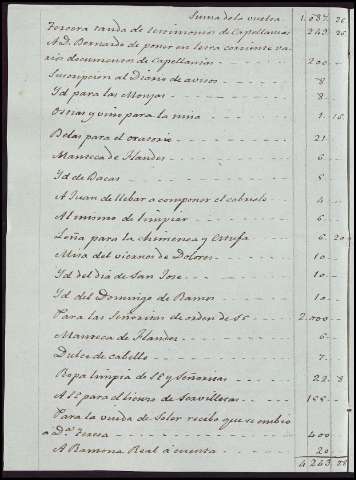 Suma de la vuelta 1.687 26
Tercera tanda de testimonios de Capellanias 243 26
A D. Bernardo de poner en letra corriente va-
rios documentos de Capellanias 200
Suscripcion al Diario de avisos 8
Yd para las Monjas 8
y vino para la niña 1 16
Belas para el oratorio 21
Manteca de Flandes 6
Yd de Bacas 5
A Juan de llebar a componer el cabriole 4
Al mismo de limpiar 6
Leña para la chimenea y estufa 6 20
Misa del viernes de Dolores 10
Yd del dia de San Jose 10
Yd del Domingo de Ramos 10
Para las Señoritas de orden de SE 2.000
Manteca de Flandes 6
Dulce de cabello 7
Ropa limpia de SE y Señoritas 22 8
A SE para el lienzo de Servilletas
Para la viuda de Soler recibo que se embio
a Dª Teresa 400
A Ramona Real á cuenta 20